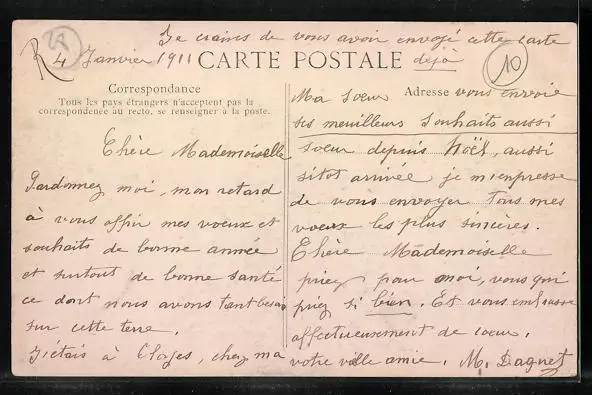 Je crains de vous avoir envoyé cette carte
R
4 Janvier 1911 CARTE POSTALE déjà
10
Correspondance
Tous les pays étrangers n'acceptent pas la
correspondence au recto, se renseigner à la poste.
Chère Mademoiselle
Pardonnez moi, mon retard
à vous offrir mes voeux et
souhaits de bonne année
et surtout de bonne santé
ce dont nous avons tant besoin
sur cette terre.
J'étais à Cloyes, chez ma
Adresse
Ma soeur vous envoie
ses meuilleurs souhaits aussi
soeur depuis Noël, aussi
sitot arrivée je m'empresse
de vous envoyer tous mes
voeux les plus sincères.
Chère Mademoiselle
priez pour moi, vous qui
priez si bien. Et vous embrasse
affectueusement de coeur.
votre vieille amie. M. Daguet